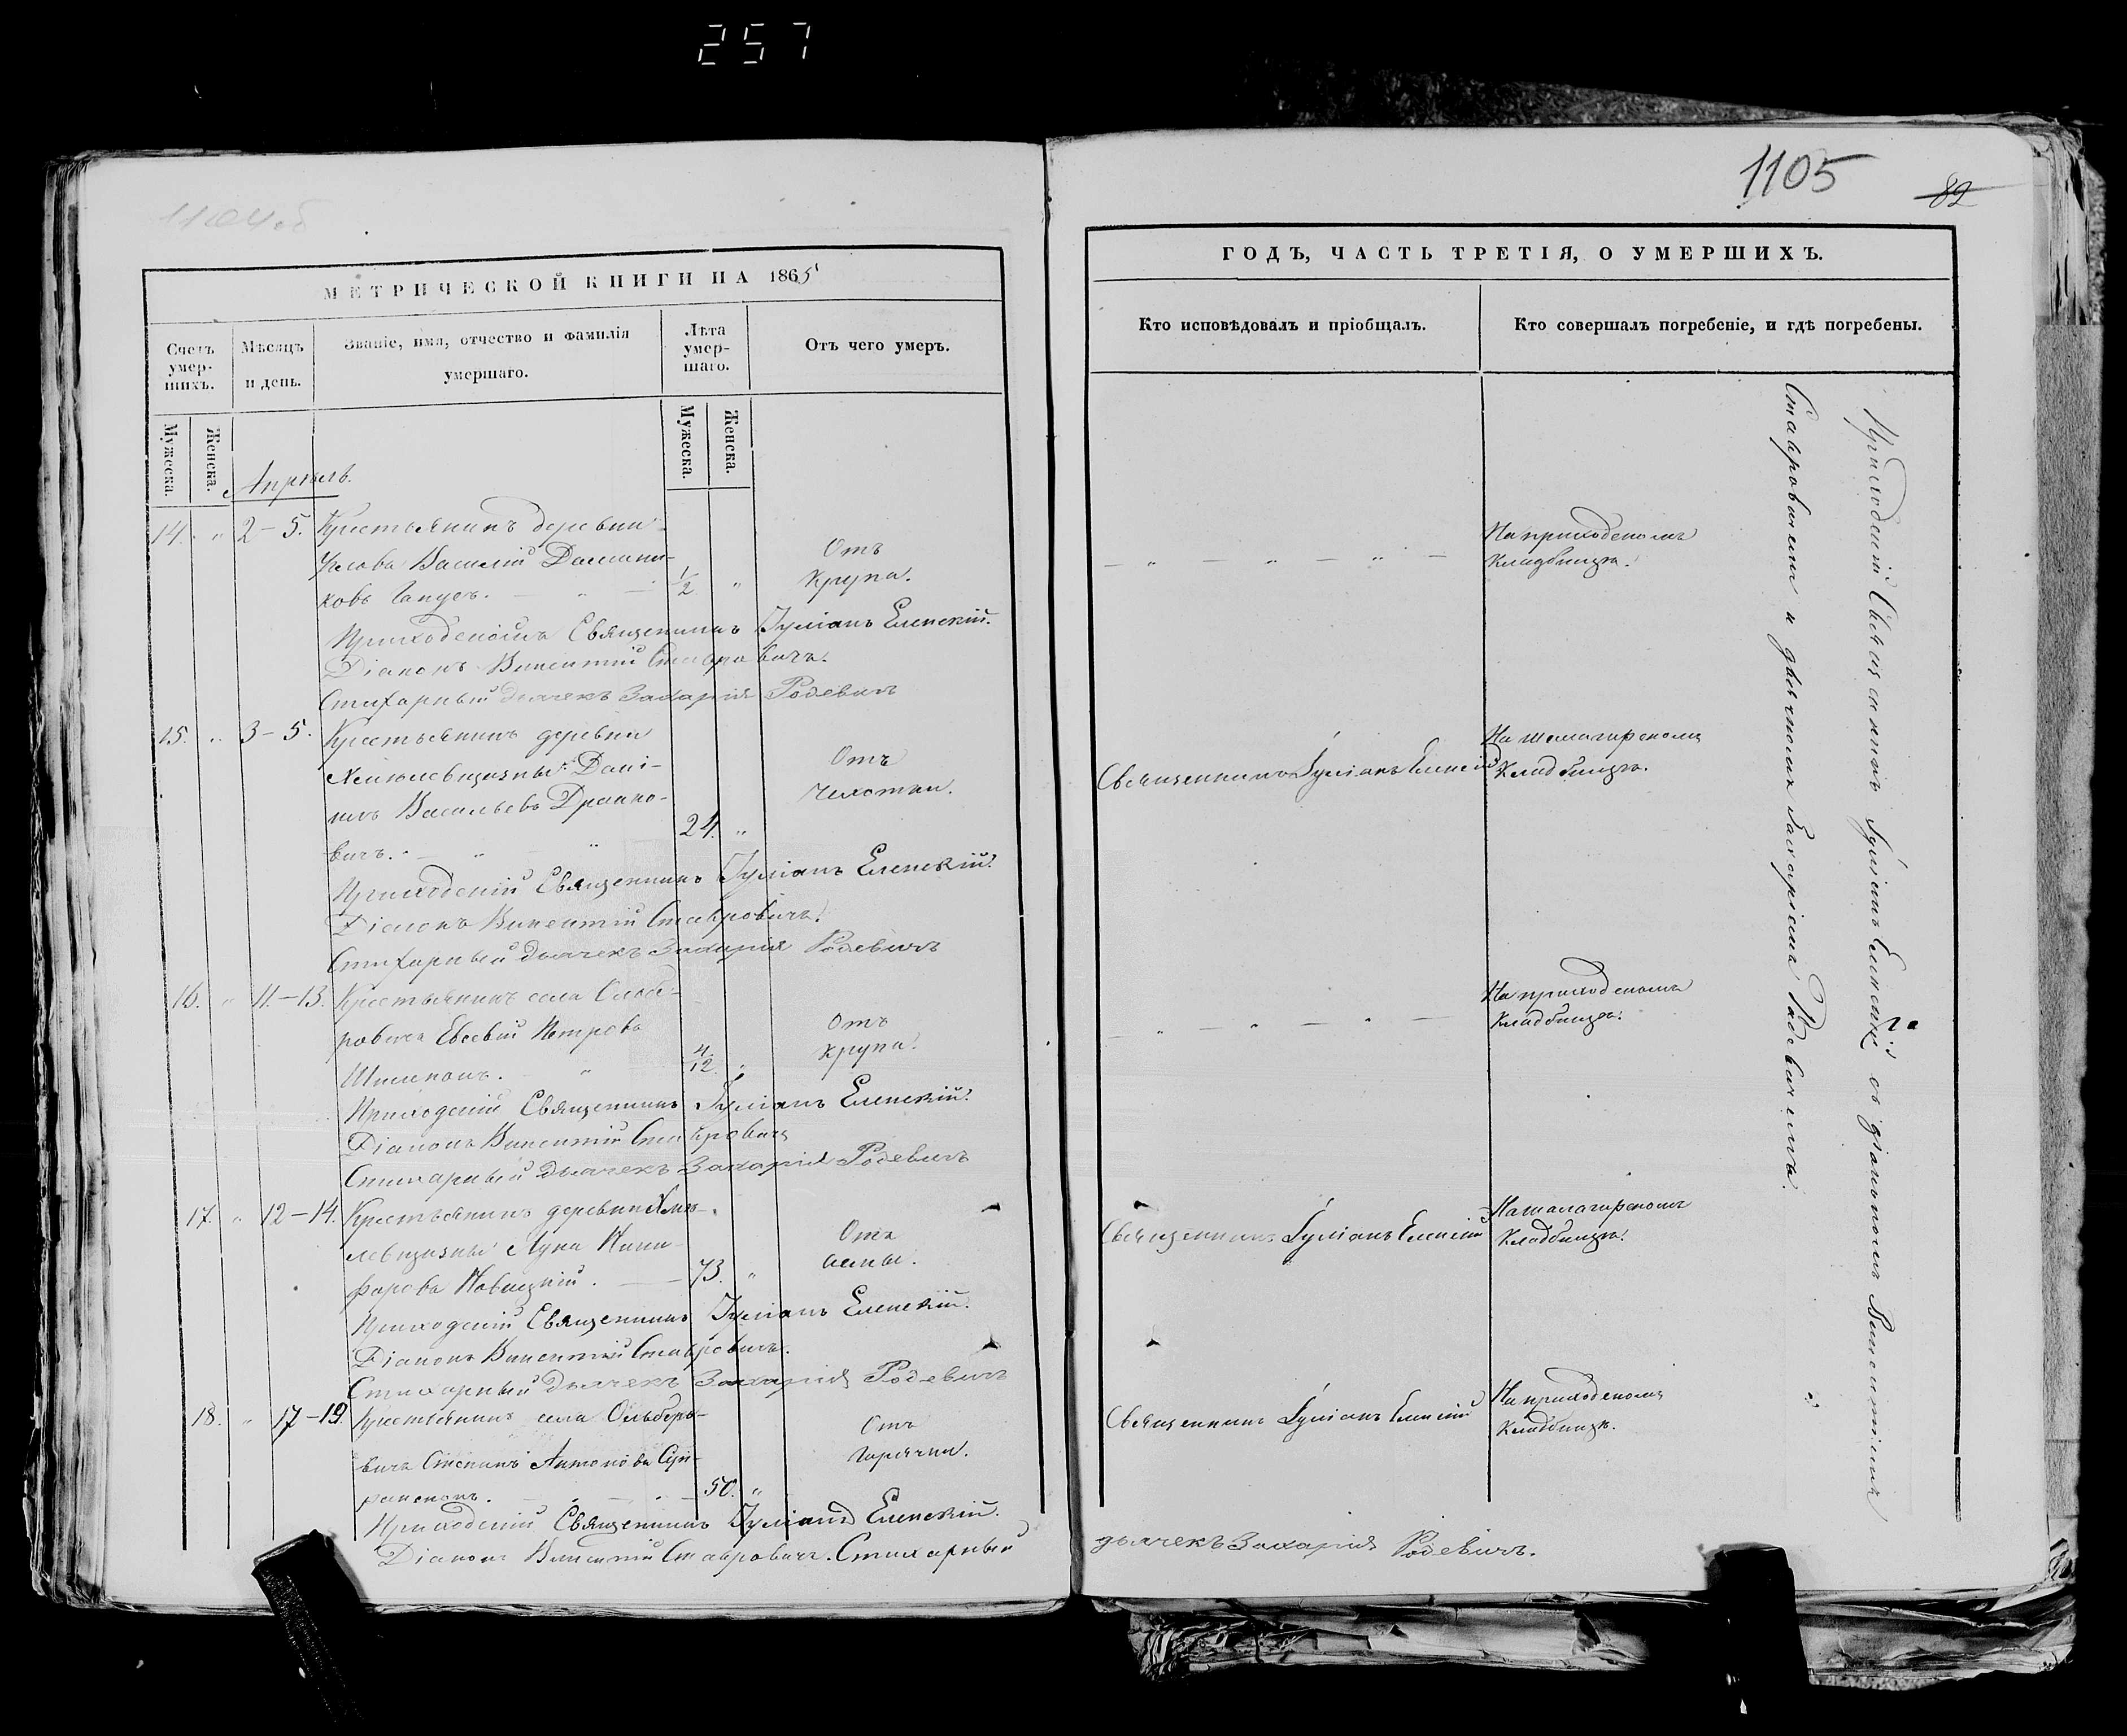 257
1104об
МЕТРИЧЕСКОЙ КНИГИ НА 1865
Счетъ умер-шихъ.
Мѣсяцъ и день.
Званіе, имя, отчество и фамилія умершаго.
Лѣта умер-шаго.
Отъ чего умеръ.
Мужеска.
Женска.
Мужеска.
Женска.
Апрѣль.
14. " 2–5. Крестьянинъ деревни
Василій
ковъ 1/2 "
Отъ
крупа.
Приходскій Священникъ Іуліанъ Еленскій.
Діаконъ Викентій Ставровичъ.
Стихарный дьячекъ Захарія Родевичъ
15. " 3–5. Крестьянинъ деревни
Дані-
илъ Васильевъ
вичъ. 24. "
Отъ
чахотки.
Приходскій Священникъ Іуліанъ Еленскій.
Діаконъ Викентій Ставровичъ.
Стихарный дьячекъ Захарія Родевичъ
16. " 11–13. Крестьянинъ села Ольбе-
ровича Евсевій Петровъ
4/12. "
Отъ
крупа.
Приходскій Священникъ Іуліанъ Еленскій.
Діаконъ Викентій Ставровичъ
Стихарный дьячекъ Захарія Родевичъ
17. " 12–14. Крестьянинъ деревни
Лука Ники-
форовъ Новицкій. 73. "
Отъ
Приходскій Священникъ Іуліанъ Еленскій.
Діаконъ Викентій Ставровичъ.
Стихарный дьячекъ Захарія Родевичъ
18. " 17–19. Крестьянинъ села Ольберо-
вичъ Антоновъ
50. "
Отъ
горячки.
Приходскій Священникъ Іуліанъ Еленскій.
Діаконъ Викентій Ставровичъ. Стихарный
1105
82
ГОДЪ, ЧАСТЬ ТРЕТІЯ, О УМЕРШИХЪ.
Кто исповѣдовалъ и пріобщалъ.
Кто совершалъ погребеніе, и гдѣ погребены.
На приходскомъ
кладбищѣ.
Священникъ Іуліанъ Еленскій
кладбищѣ.
На приходскомъ
кладбищѣ.
Священникъ Іуліанъ Еленскій
кладбищѣ.
Священникъ Іуліанъ Еленскій
На приходскомъ
кладбищѣ.
Приходскій Священникъ Іуліанъ Еленскій съ діакономъ Викентіемъ
Ставровичемъ и дьячкомъ Захаріемъ Родевичемъ.
дьячекъ Захарія Родевичъ.